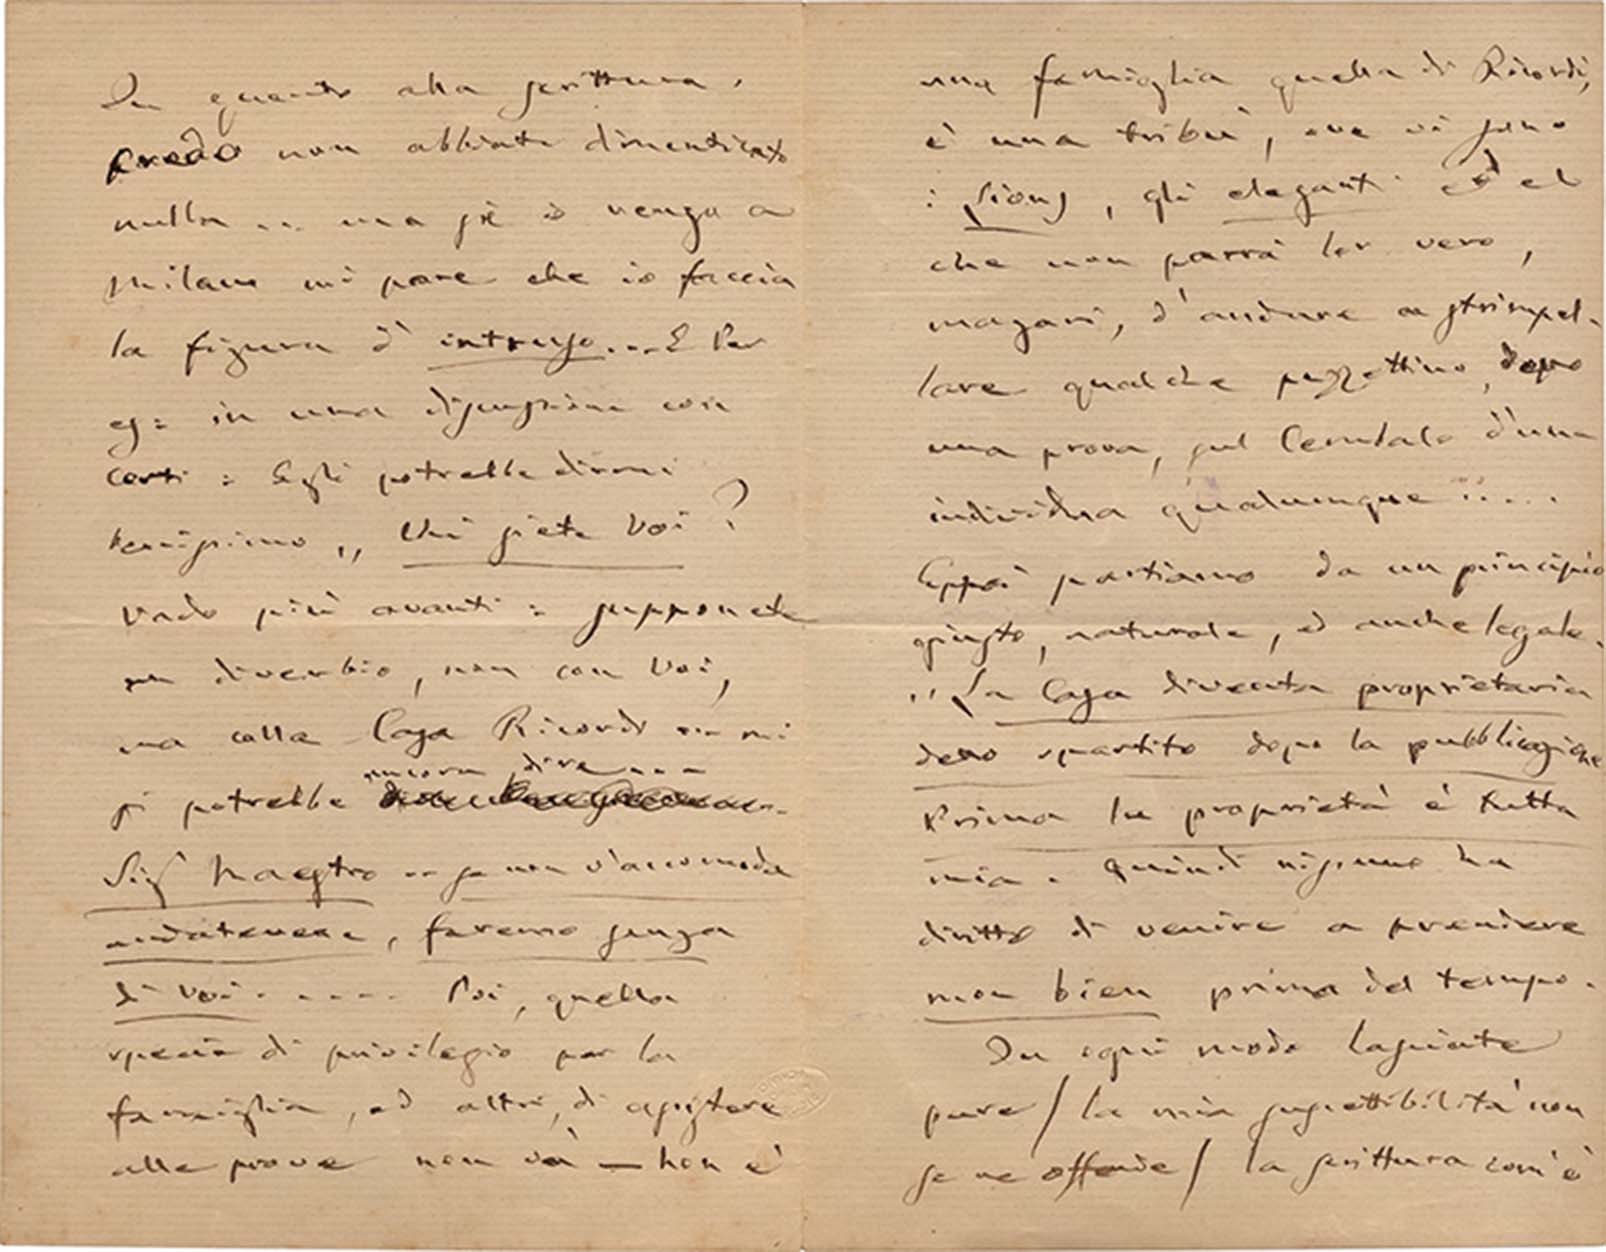 In quanto alla scrittura,
credo non abbiate dimenticato
nulla ... ma se io vengo a
Milano mi pare che io faccia
la figura d' intruso....E Per
es: in una discussione con
Corti: Egli potrebbe dirmi
benissimo „ Chi siete Voi?
Vado più avanti: supponete
un diverbio, non con Voi,
ma colla Casa Ricordi ... mi
ancora dire...
si potrebbe
Sigr Maestro .. se non v'accomoda
andatevene, faremo senza
di Voi..... Poi, quella
specie di privilegio per la
famiglia, ed altri, di assistere
alle prove non và — non è
una famiglia quella di Ricordi,
è una tribù, ove vi sono
i Lions, gli eleganti ed
che non parrà lor vero,
magari, d'andare a strimpel-
lare qualche pezzettino, dopo
una prova, sul Cembalo d'una
individua qualunque .....
Eppoi partiamo da un principio
giusto, naturale, ed anche legale.
„ La Casa diventa proprietaria
dello spartito dopo la pubblicazione
Prima la proprietà è tutta
mia. Quindi nissuno ha
diritto di venire a prendere
mon bien prima del tempo.
In ogni modo lasciate
pure / la mia suscettibilità non
se ne offende / la scrittura com'è